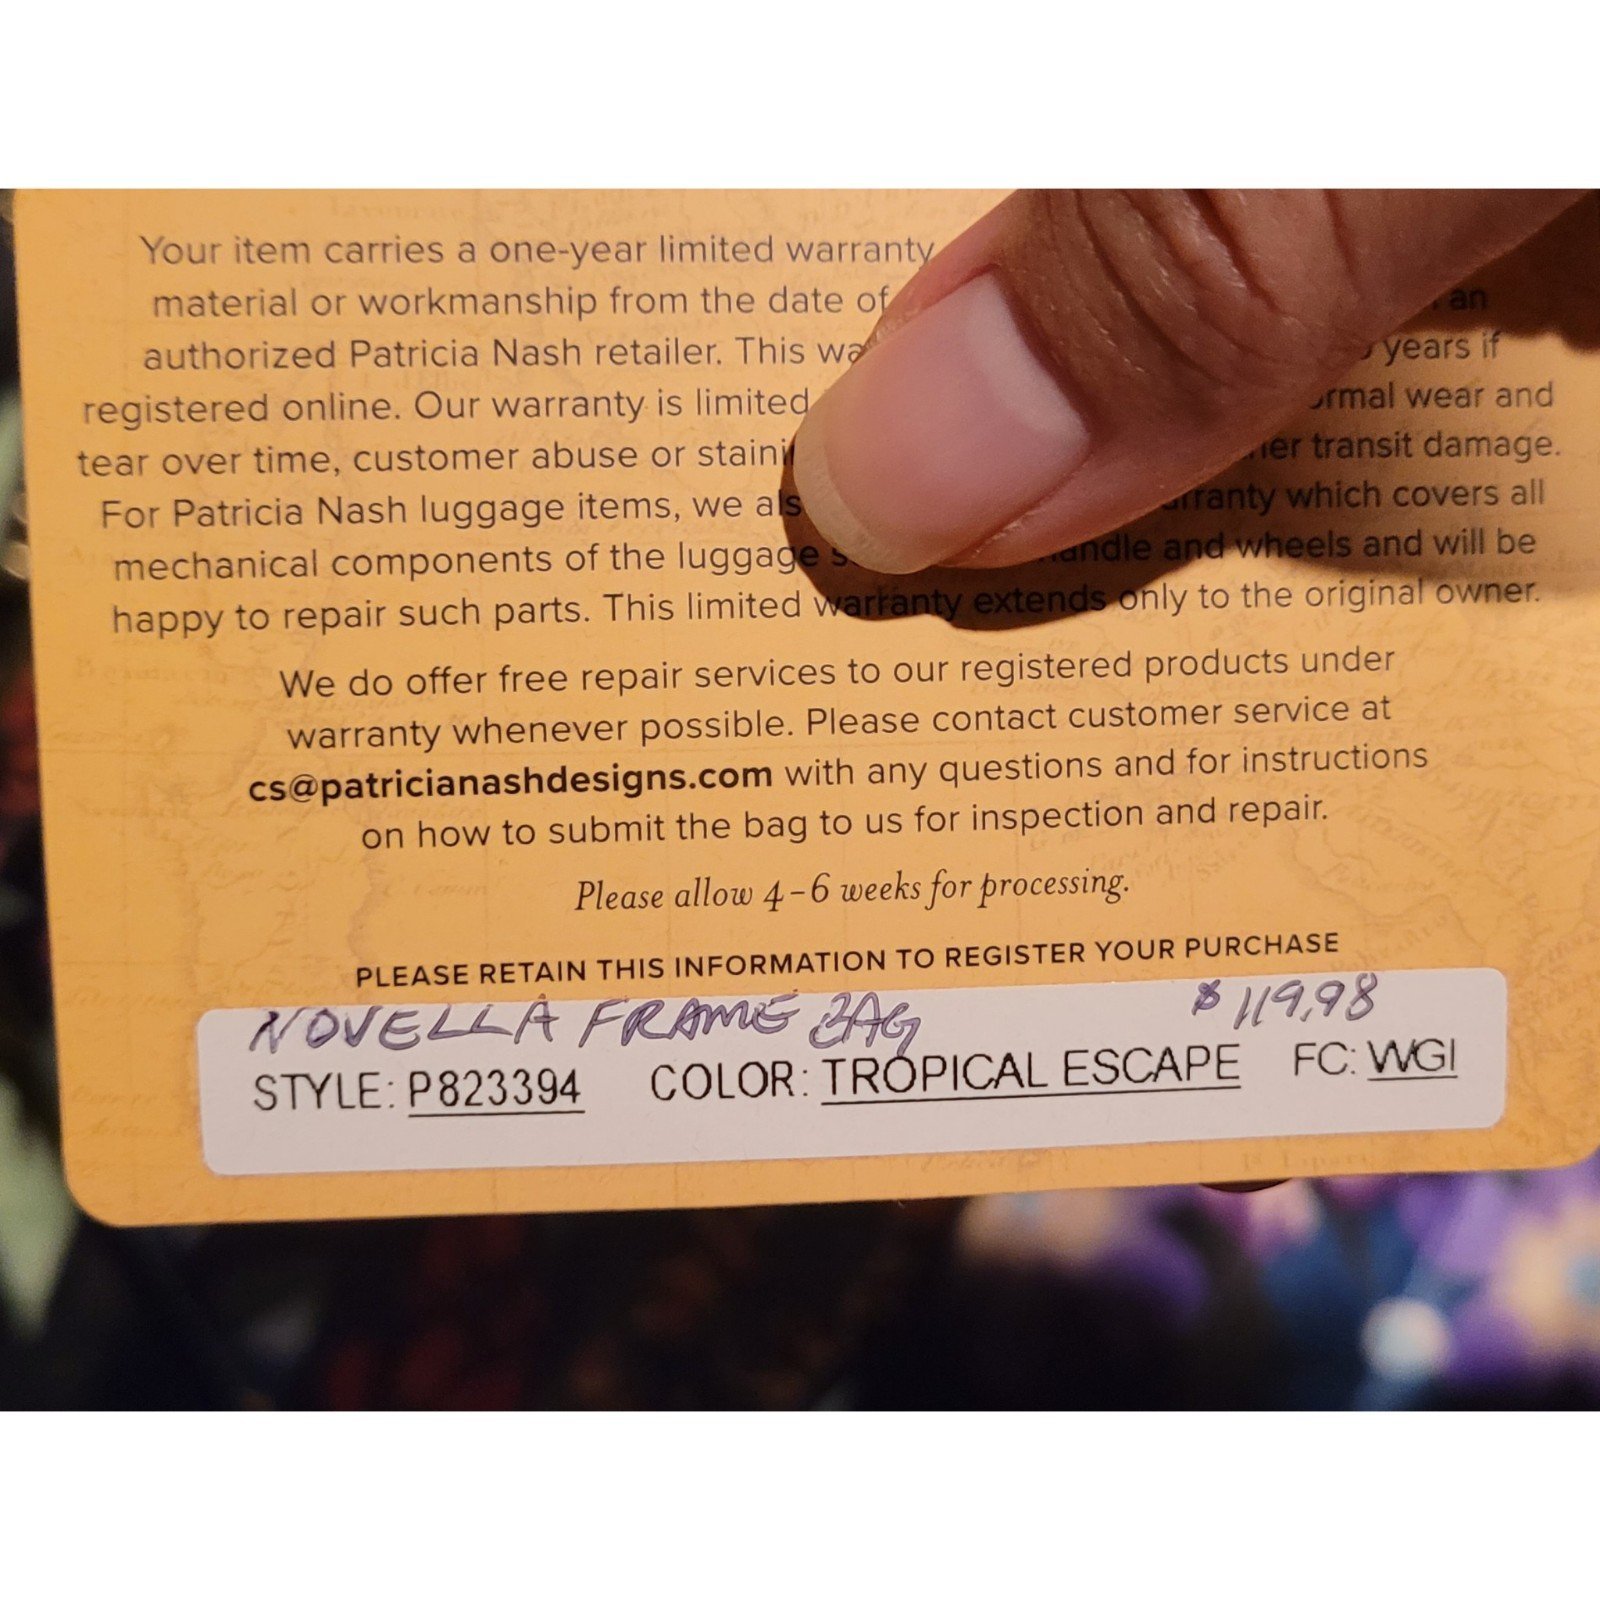 Your item carries a one-year limited warranty
material or workmanship from the date of an
authorized Patricia Nash retailer. This years if
registered online. Our warranty is limited wear and
tear over time, customer abuse or transit damage.
For Patricia Nash luggage items, we which covers all
mechanical components of the luggage and wheels and will be
happy to repair such parts. This limited warranty extends only to the original owner.
We do offer free repair services to our registered products under
warranty whenever possible. Please contact customer service at
cs@patricianashdesigns.com with any questions and for instructions
on how to submit the bag to us for inspection and repair.
Please allow 4-6 weeks for processing.
PLEASE RETAIN THIS INFORMATION TO REGISTER YOUR PURCHASE
NOVELLA FRAME BAG $119.98
STYLE: P823394 COLOR: TROPICAL ESCAPE FC: WGI